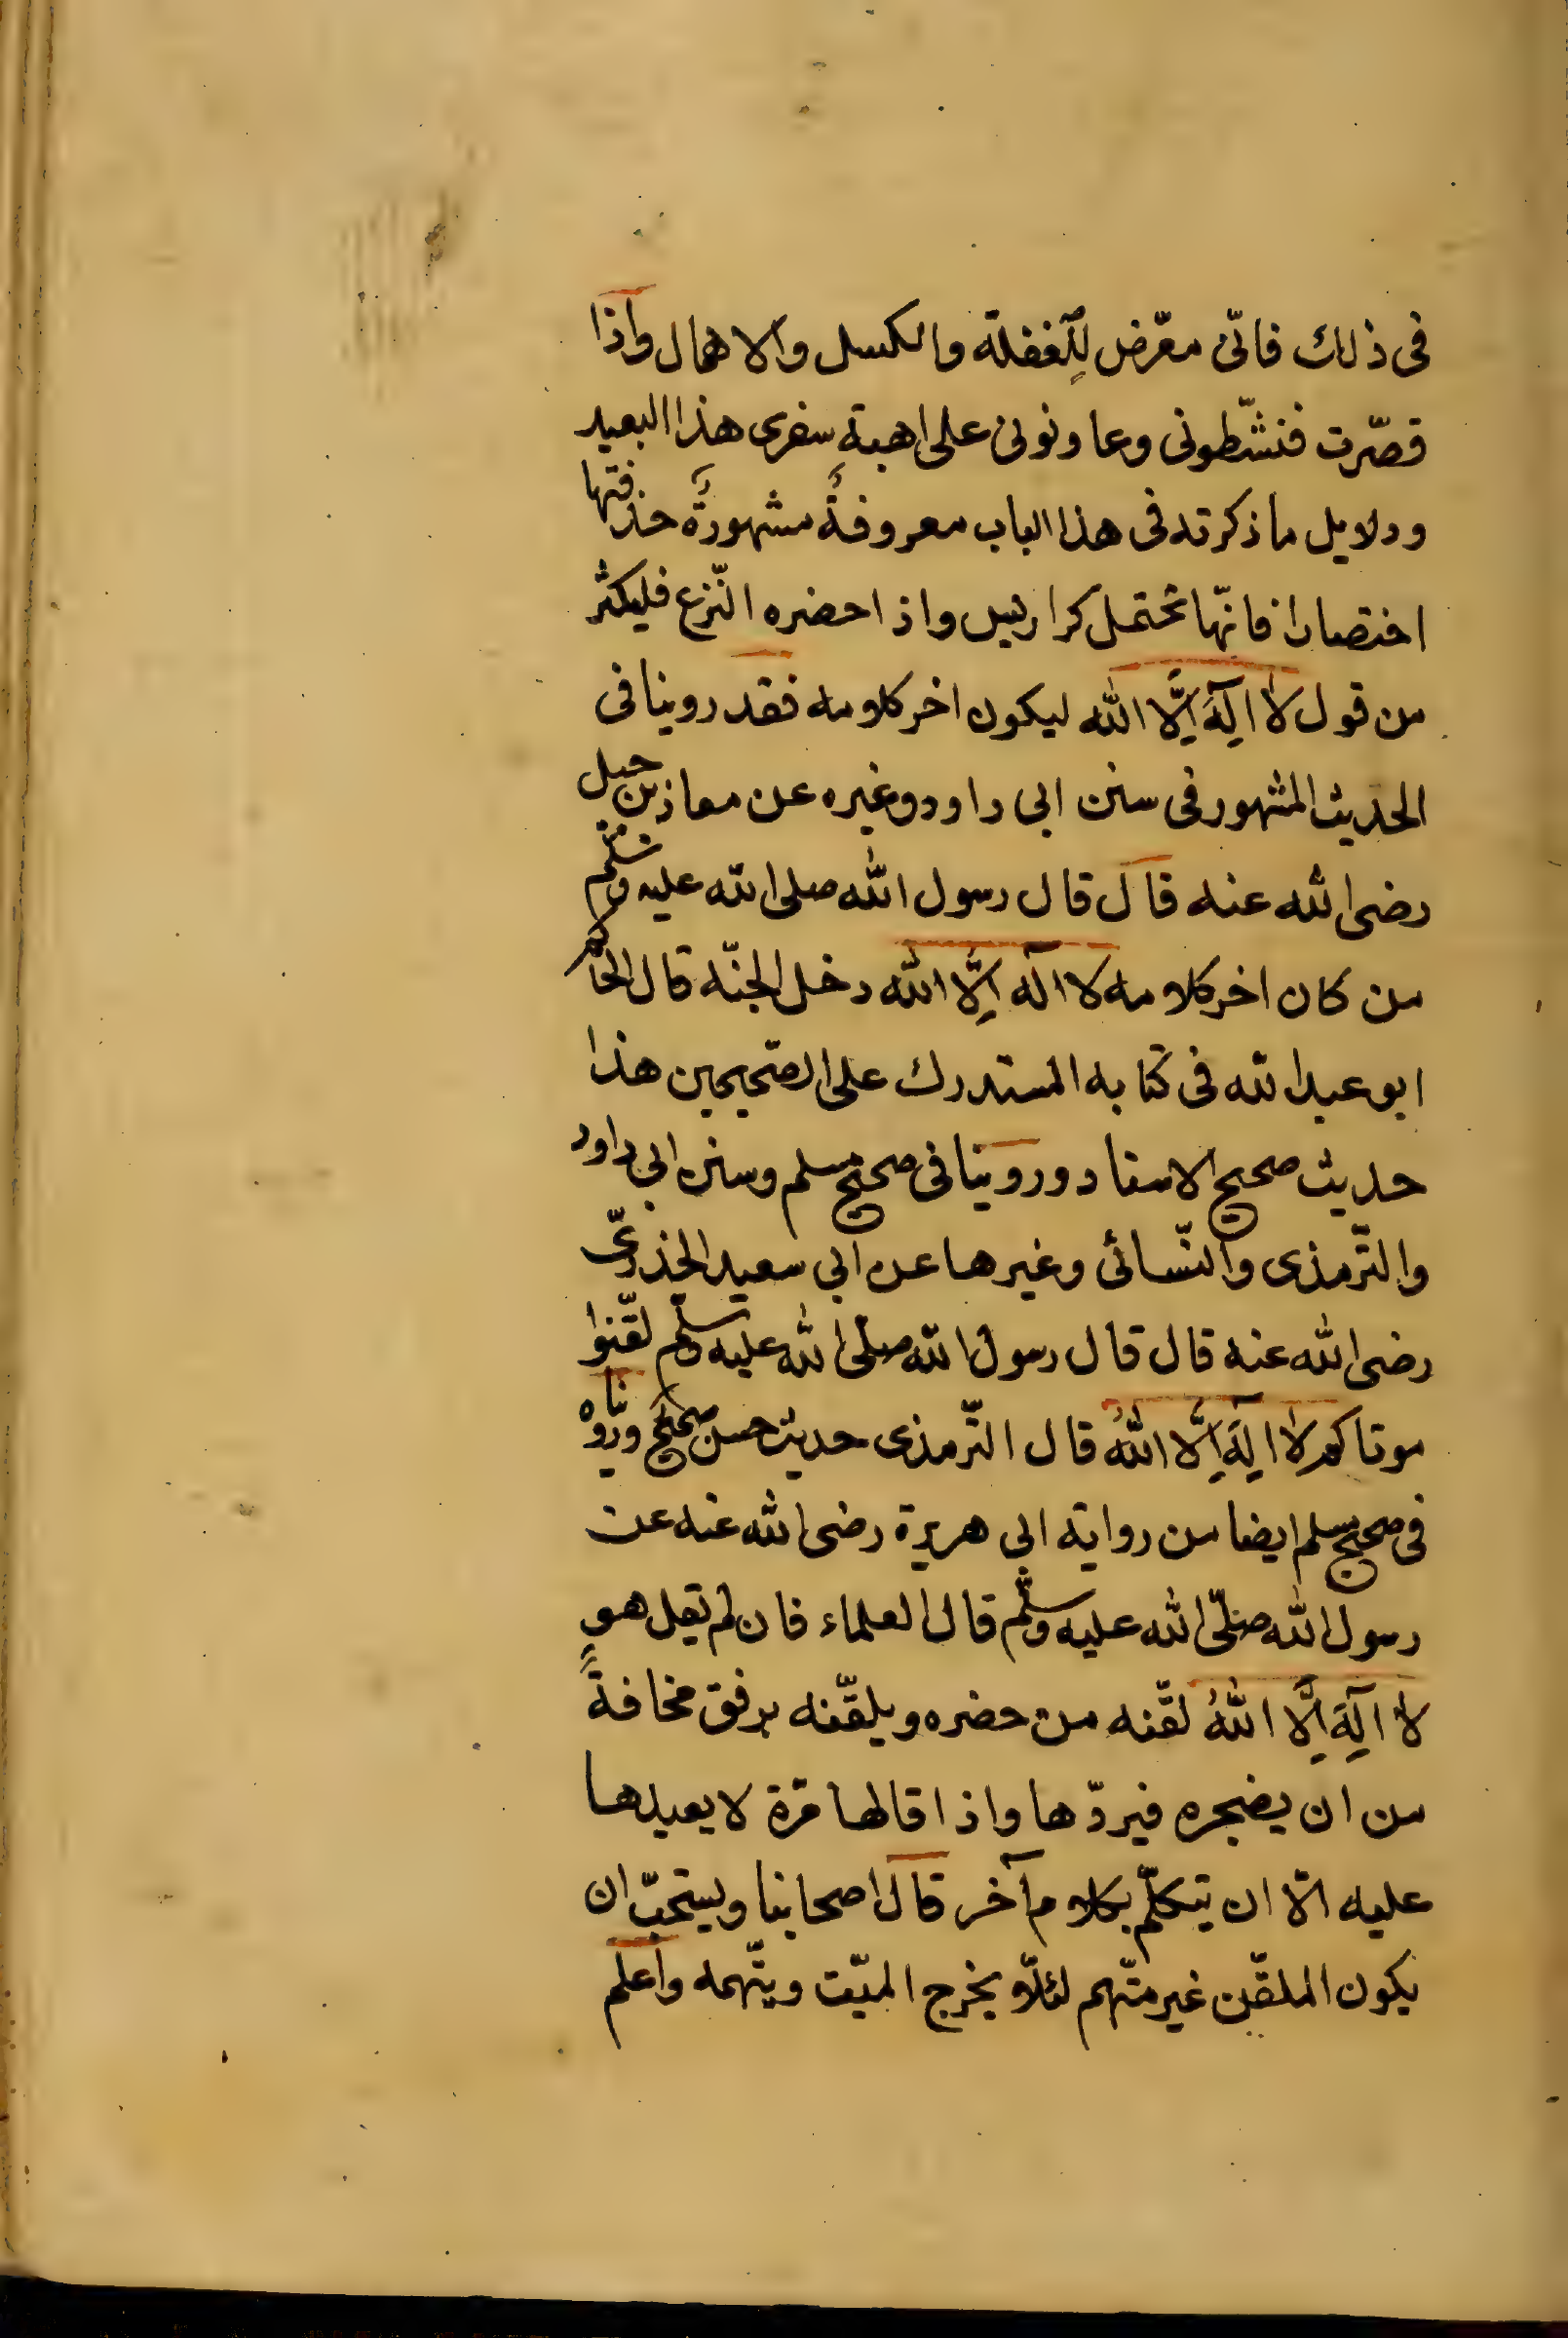 فى ذلك فانّى معّرض للغفلة والكسل والاهمال واذا
قصّرت فنشّطونى وعاونونى على اهبة سفرى هذا البعيد
ودلايل ما ذكرته فى هذا الباب معروفةً مشهورةً حذفتها
اختصارا فانّها تحتمل كراريس واذا حضره النّزع فليكثر
من قول لا اله الّا الله ليكون اخر كلامه فقد روينا فى
الحديث المشهور فى سنن ابى داود وغيره عن معاذ بن جبل
رضى الله عنه قال قال رسول الله صلى الله عليه وسلّم
من كان اخر كلامه لا اله الّا الله دخل الجنّه قال الحاكم
ابو عبد الله فى كتابه المستدرك على الصّحيحين هذا
حديث صحيح الاسناد وروينا فى صحيح مسلم وسنن ابى داود
والتّرمذى والنّسائى وغيرها عن ابى سعيد الخذرىّ
رضى الله عنه قال قال رسول الله صلّى الله عليه وسلم لقّنوا
موتاكم لا اله الّا اللهُ قال التّرمذى حديث حسن صحيح وروّيناه
فى صحيح مسلم ايضا من رواية ابى هريرة رضى الله عنه عن
رسول الله صلّى الله عليه وسلّم قال العلماء فان لم يقل هو
لا اله الّا اللهُ لقّنه من حضره ويلقّنه برفق مخافةً
من ان يضجره فيردّها واذا قالها مرّة لا يعيدها
عليه الّا ان يتكلّم بكلام آخر قال اصحابنا ويستحبّ ان
يكون الملقّن غير متّهم لئلّا يخرج الميّت ويتّهمه واعلم